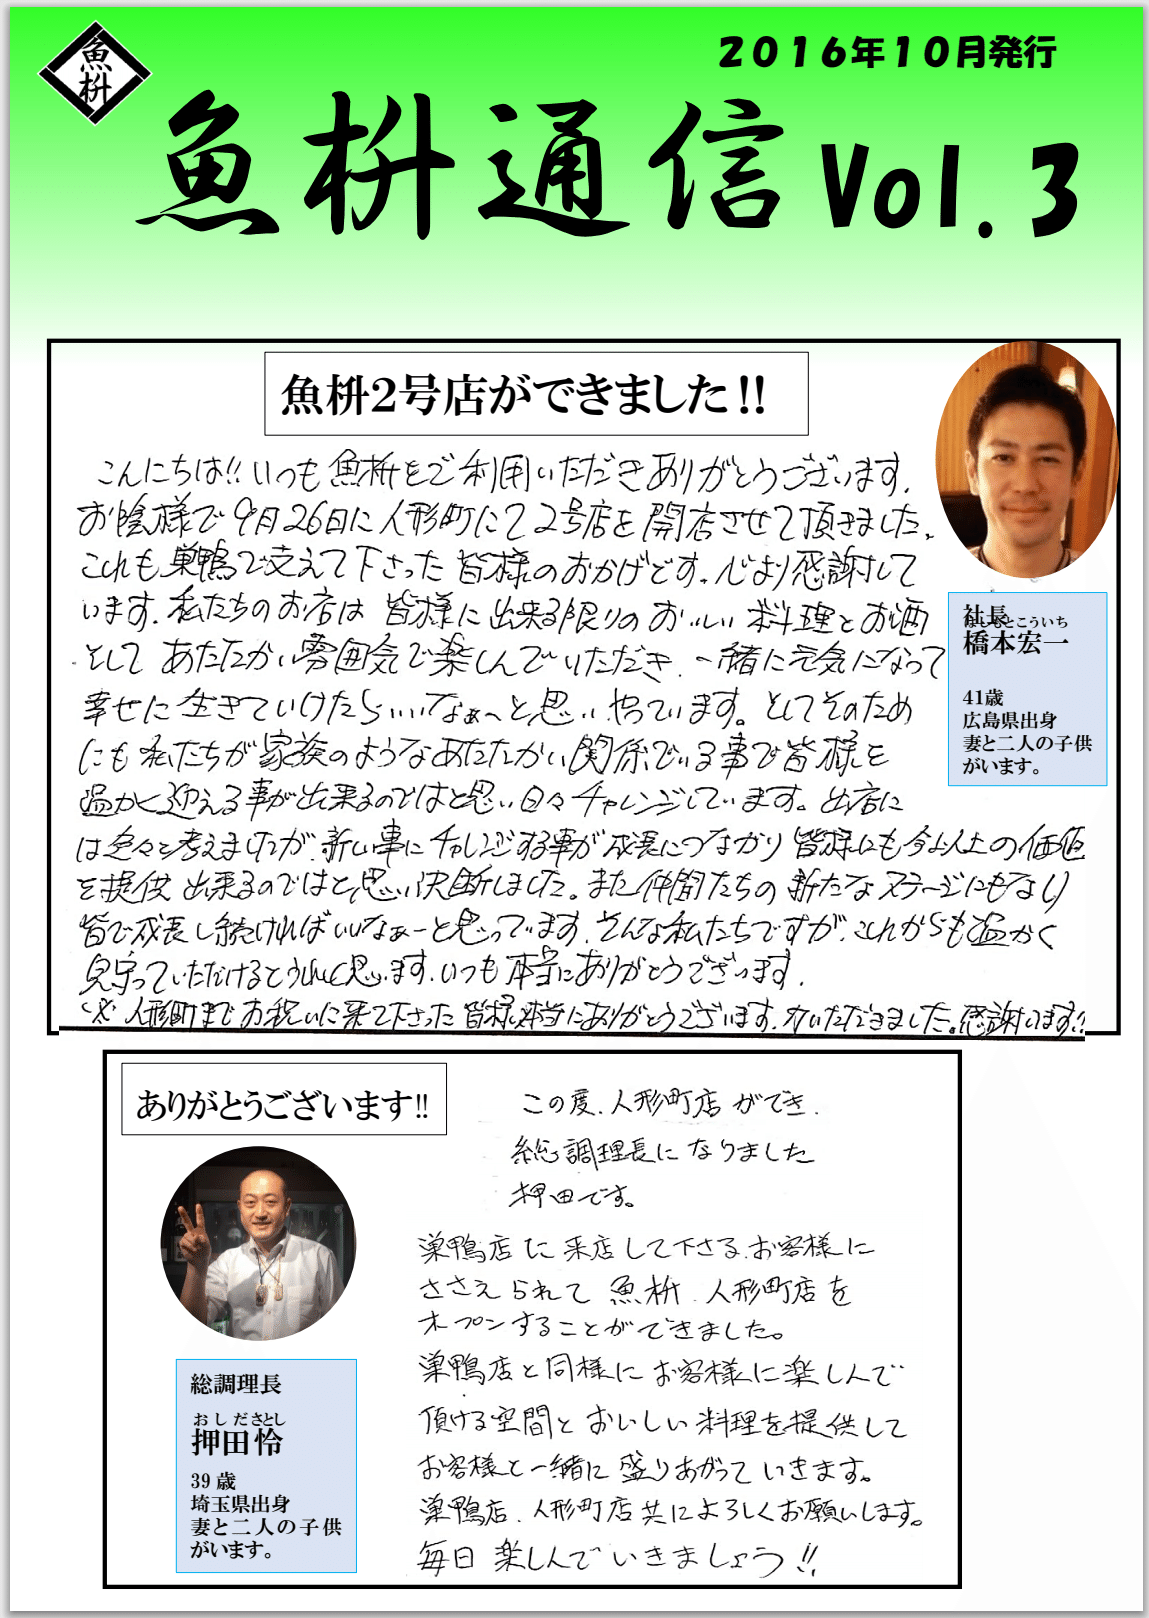 魚枡
2016年10月発行
魚枡通信 Vol.3
魚枡2号店ができました!!
こんにちは!!いつも魚枡をご利用いただきありがとうございます.
お陰様で9月26日に人形町にて2号店を開店させて頂きました。
これも巣鴨で支えて下さった皆様のおかげです。心より感謝して
います.私たちのお店は皆様に出来る限りのおいしい料理とお酒
そして あたたかい雰囲気で楽しんでいただき.一緒に元気になって
幸せに生きていけたらいいなぁ〜と思いやっています。そしてそのため
にも私たちが家族のようなあたたかい関係でいる事で皆様を
温かく迎える事が出来るのではと思い日々チャレンジしています。出店に
は色々と考えましたが.新しい事にチャレンジする事が成長につながり皆様にも今以上の価値
を提供出来るのではと思い決断しました。また仲間たちの新たなステージにもなり
皆で成長し続ければいいなぁーと思っています.そんな私たちですが.これからも温かく
見守っていただけるとうれしく思います.いつも本当にありがとうございます.
※人形町までお祝いに来て下さった皆様本当にありがとうございます.力いただきました。感謝います!!
社長
はしもとこういち
橋本宏一
41歳
広島県出身
妻と二人の子供
がいます。
ありがとうございます!!
この度.人形町店ができ.
総調理長になりました
押田です。
巣鴨店に来店して下さる.お客様に
ささえられて 魚枡.人形町店を
オープンすることができました。
巣鴨店と同様にお客様に楽しんで
頂ける空間とおいしい料理を提供して
お客様と一緒に盛りあがっていきます。
巣鴨店.人形町店共によろしくお願いします。
毎日楽しんでいきましょう!!
総調理長
おしださとし
押田怜
39歳
埼玉県出身
妻と二人の子供
がいます。